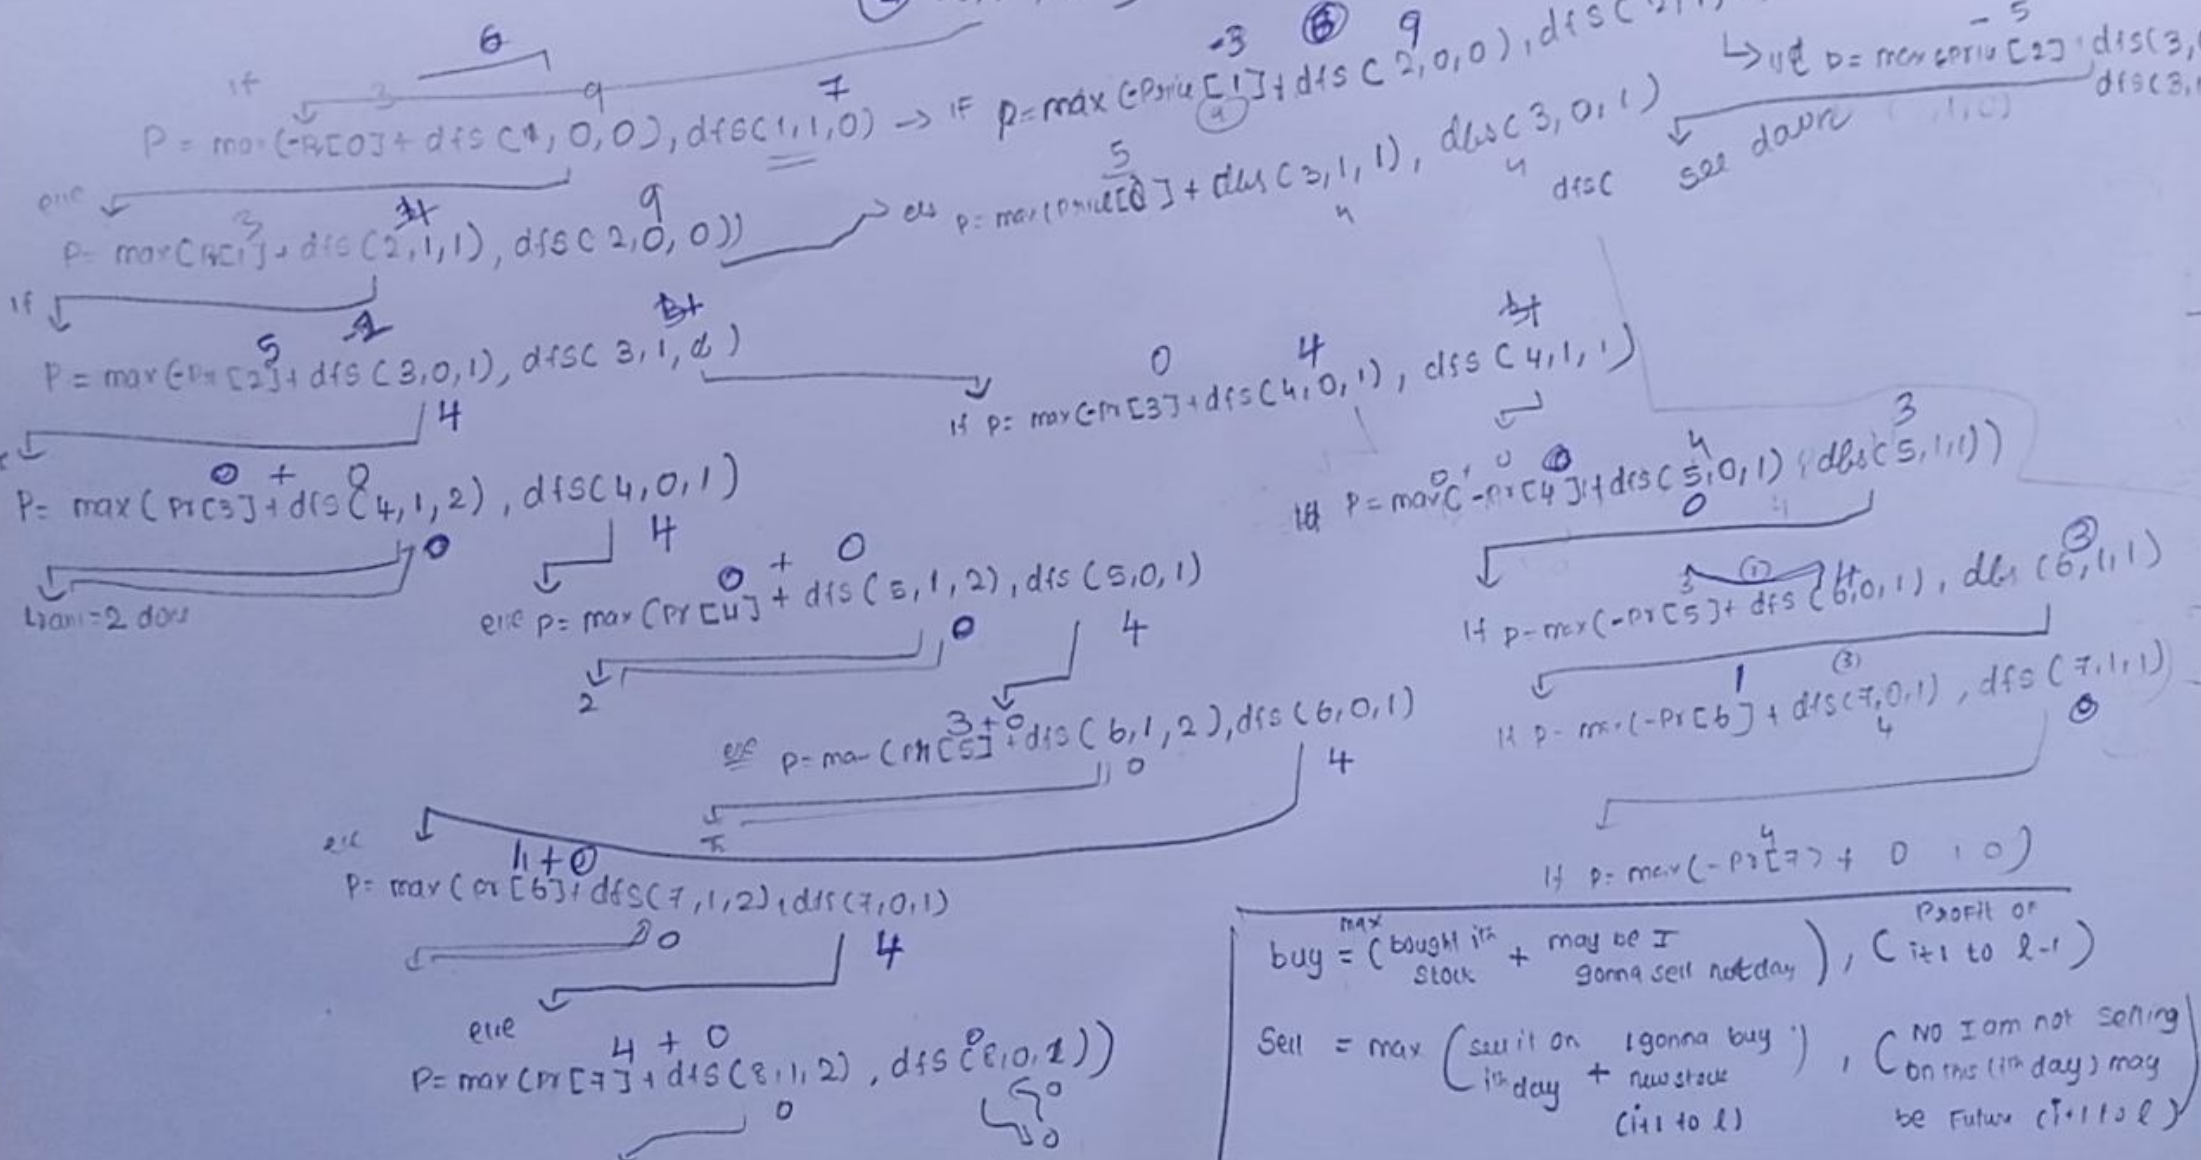 6
-3 6 9
if 3 9 7
P = max(-P[0]+ dfs(1,0,0), dfs(1,1,0) → IF p=max(-Price[1]+ dfs(2,0,0), dfs(2,1,
↳ if p= max(price[2] dfs(3,
dfs(3,
-5
else 3 9
P= max(P[1]+ dfs(2,1,1), dfs(2,0,0))
5
els p= max(price[2] + dfs(3,1,1), dfs(3,0,1)
4 4
dfs( see down
if 5
P = max(-Pr[2]+ dfs(3,0,1), dfs(3,1,
4
0 4
if p= max(-Pr[3]+dfs(4,0,1), dfs(4,1,1)
0 + 0
P= max(Pr[3]+dfs(4,1,2), dfs(4,0,1)
0 4
tran=2 
4 3
if P=max(-Pr[4]+dfs(5,0,1), dfs(5,1,1))
0
0 + 0
else p= max(Pr[4] + dfs(5,1,2), dfs(5,0,1)
0 4
2
3 (1) 4 (3)
if p=max(-Pr[5]+ dfs(6,0,1), dfs(6,1,1)
3+0
else p=max(Pr[5]+dfs(6,1,2),dfs(6,0,1)
0 4
1 (3)
if p=max(-Pr[6] + dfs(7,0,1), dfs(7,1,1)
4 0
else 1+0
P= max(Pr[6]+dfs(7,1,2),dfs(7,0,1)
0 4
4
if p= max(-Pr[7]+ 0 , 0)
else
4 + 0
P=max(Pr[7]+dfs(8,1,2), dfs(8,0,1))
0 0
0
max
buy = (bought ith stock + may be I gonna sell day), (Profit of i+1 to l-1)
Sell = max (sell it on ith day + I gonna buy new stock (i+1 to l)), (NO I am not selling on this (ith day) may be Future (i+1 to l)